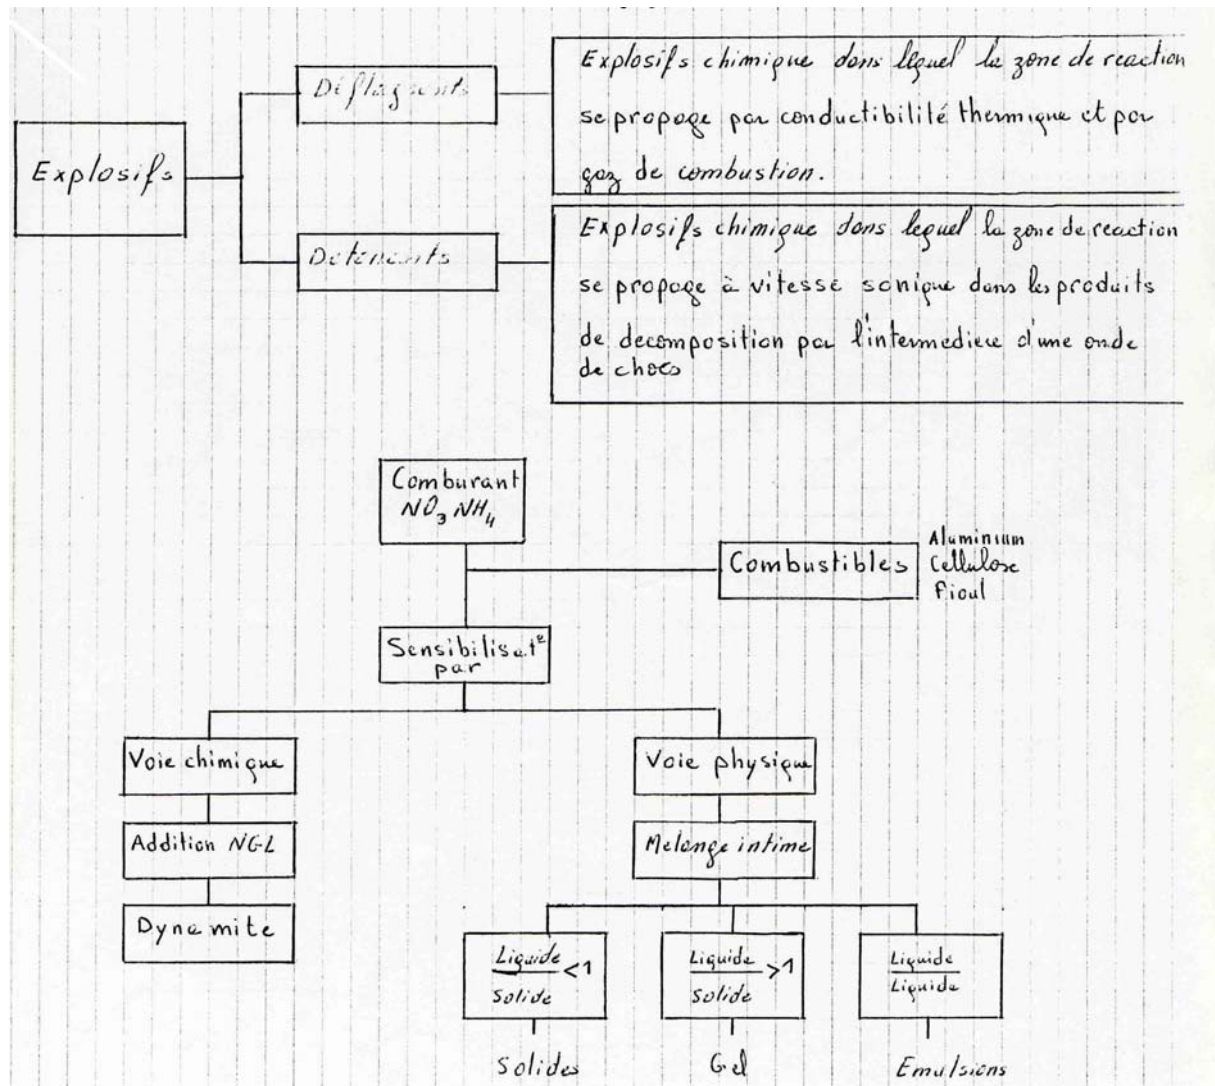 Explosifs
Déflagrants
Explosifs chimique dans lequel la zone de reaction
se propage par conductibilité thermique et par
gaz de combustion.
Détonants
Explosifs chimique dans lequel la zone de reaction
se propage à vitesse sonique dans les produits
de decomposition par l'intermediere d'une onde
de chocs
Comburant
NO3 NH4
Combustibles
Aluminium
Cellulose
Fioul
Sensibilisat°
par
Voie chimique
Addition NGL
Dynamite
Voie physique
Melange intime
Liquide
Solide <1
Liquide
Solide >1
Liquide
Liquide
Solides
Gel
Emulsions